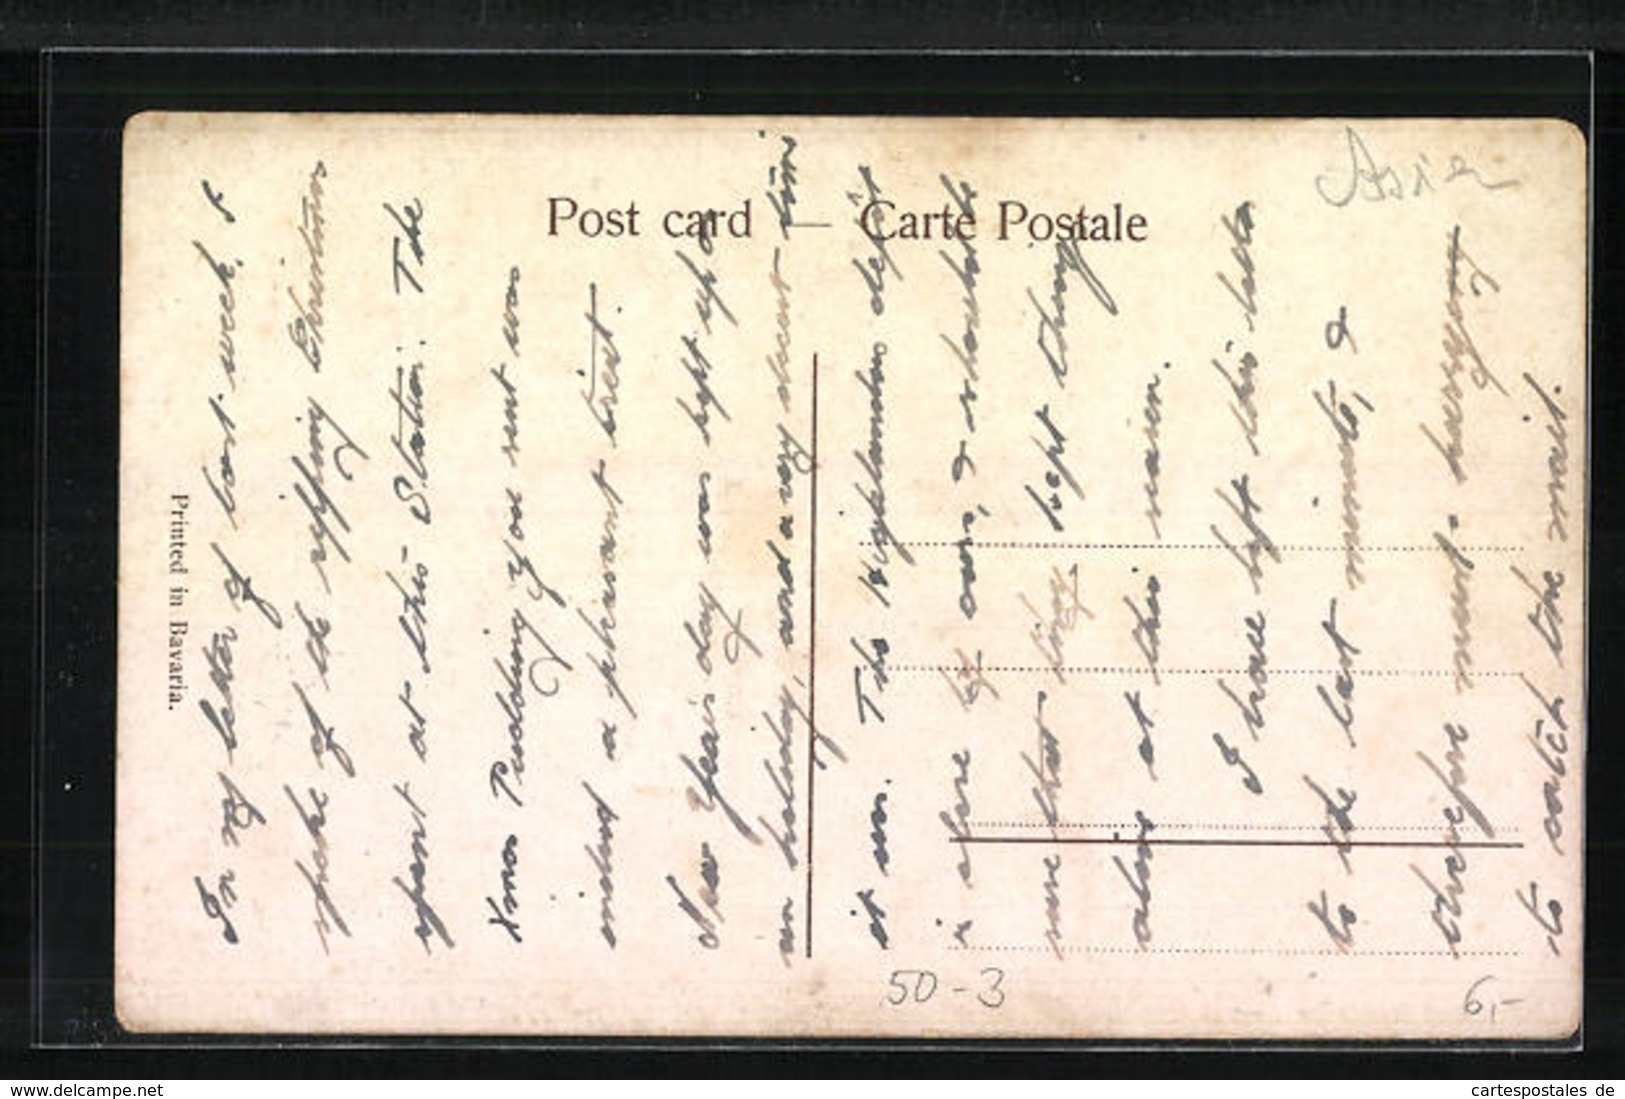 Post card — Carte Postale
Printed in Bavaria.
In my letter of last week, I
spoke of the ripping Christmas
spent at this Station. The
Xmas Pudding you sent was
indeed a pleasant treat.
New Years day was kept up a
on holiday, and a very decent time
it was. The Highlanders depôt
is above by ours, & should be
sure that they kept things
alive at this season.
I have left this letter
to the last minute, &
therefore must hurry
to catch the mail.
Asien
50-3
6,-
www.delcampe.net
cartespostales de